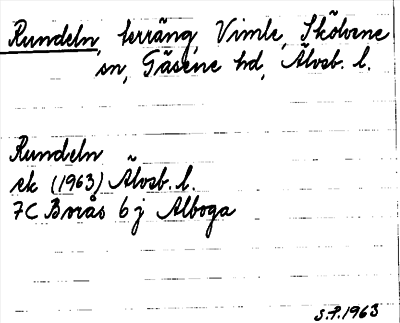 Rundeln, terräng, Vimle, Skölvene
sn, Gäsene hd, Älvsb. l.
Rundeln
ek (1963) Älvsb. l.
7C Borås 6j Alboga
S.P. 1963